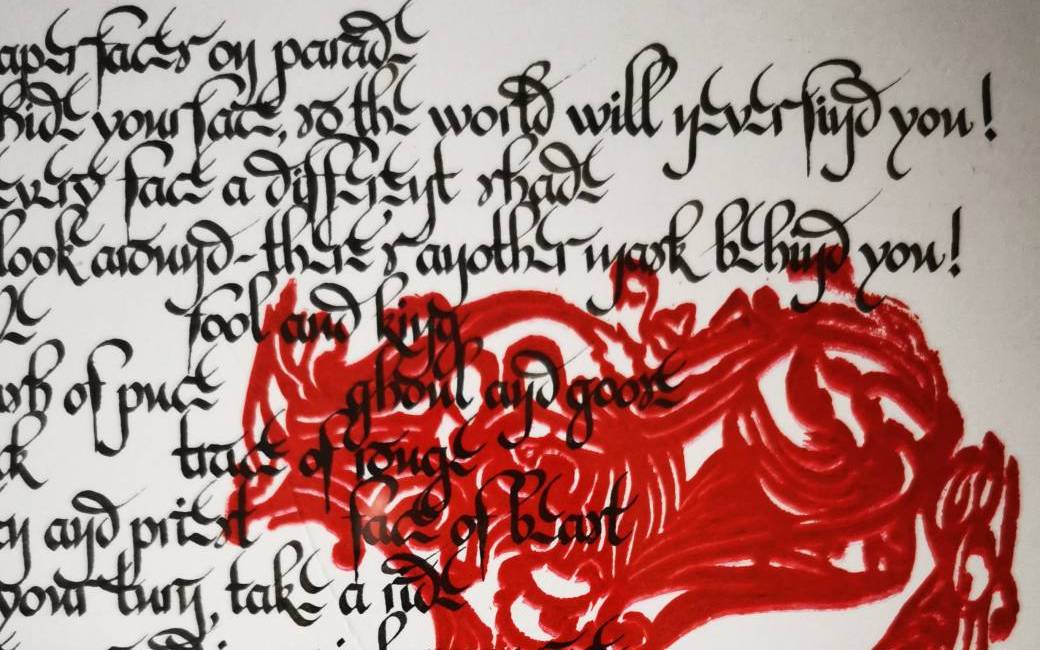 aper faces on parade
hide your face, so the world will never find you!
every face a different shade
look around - there's another mask behind you!
fool and king
sh of puce ghoul and goose
trace of rouge
and priest face of beast
your turn, take a ride